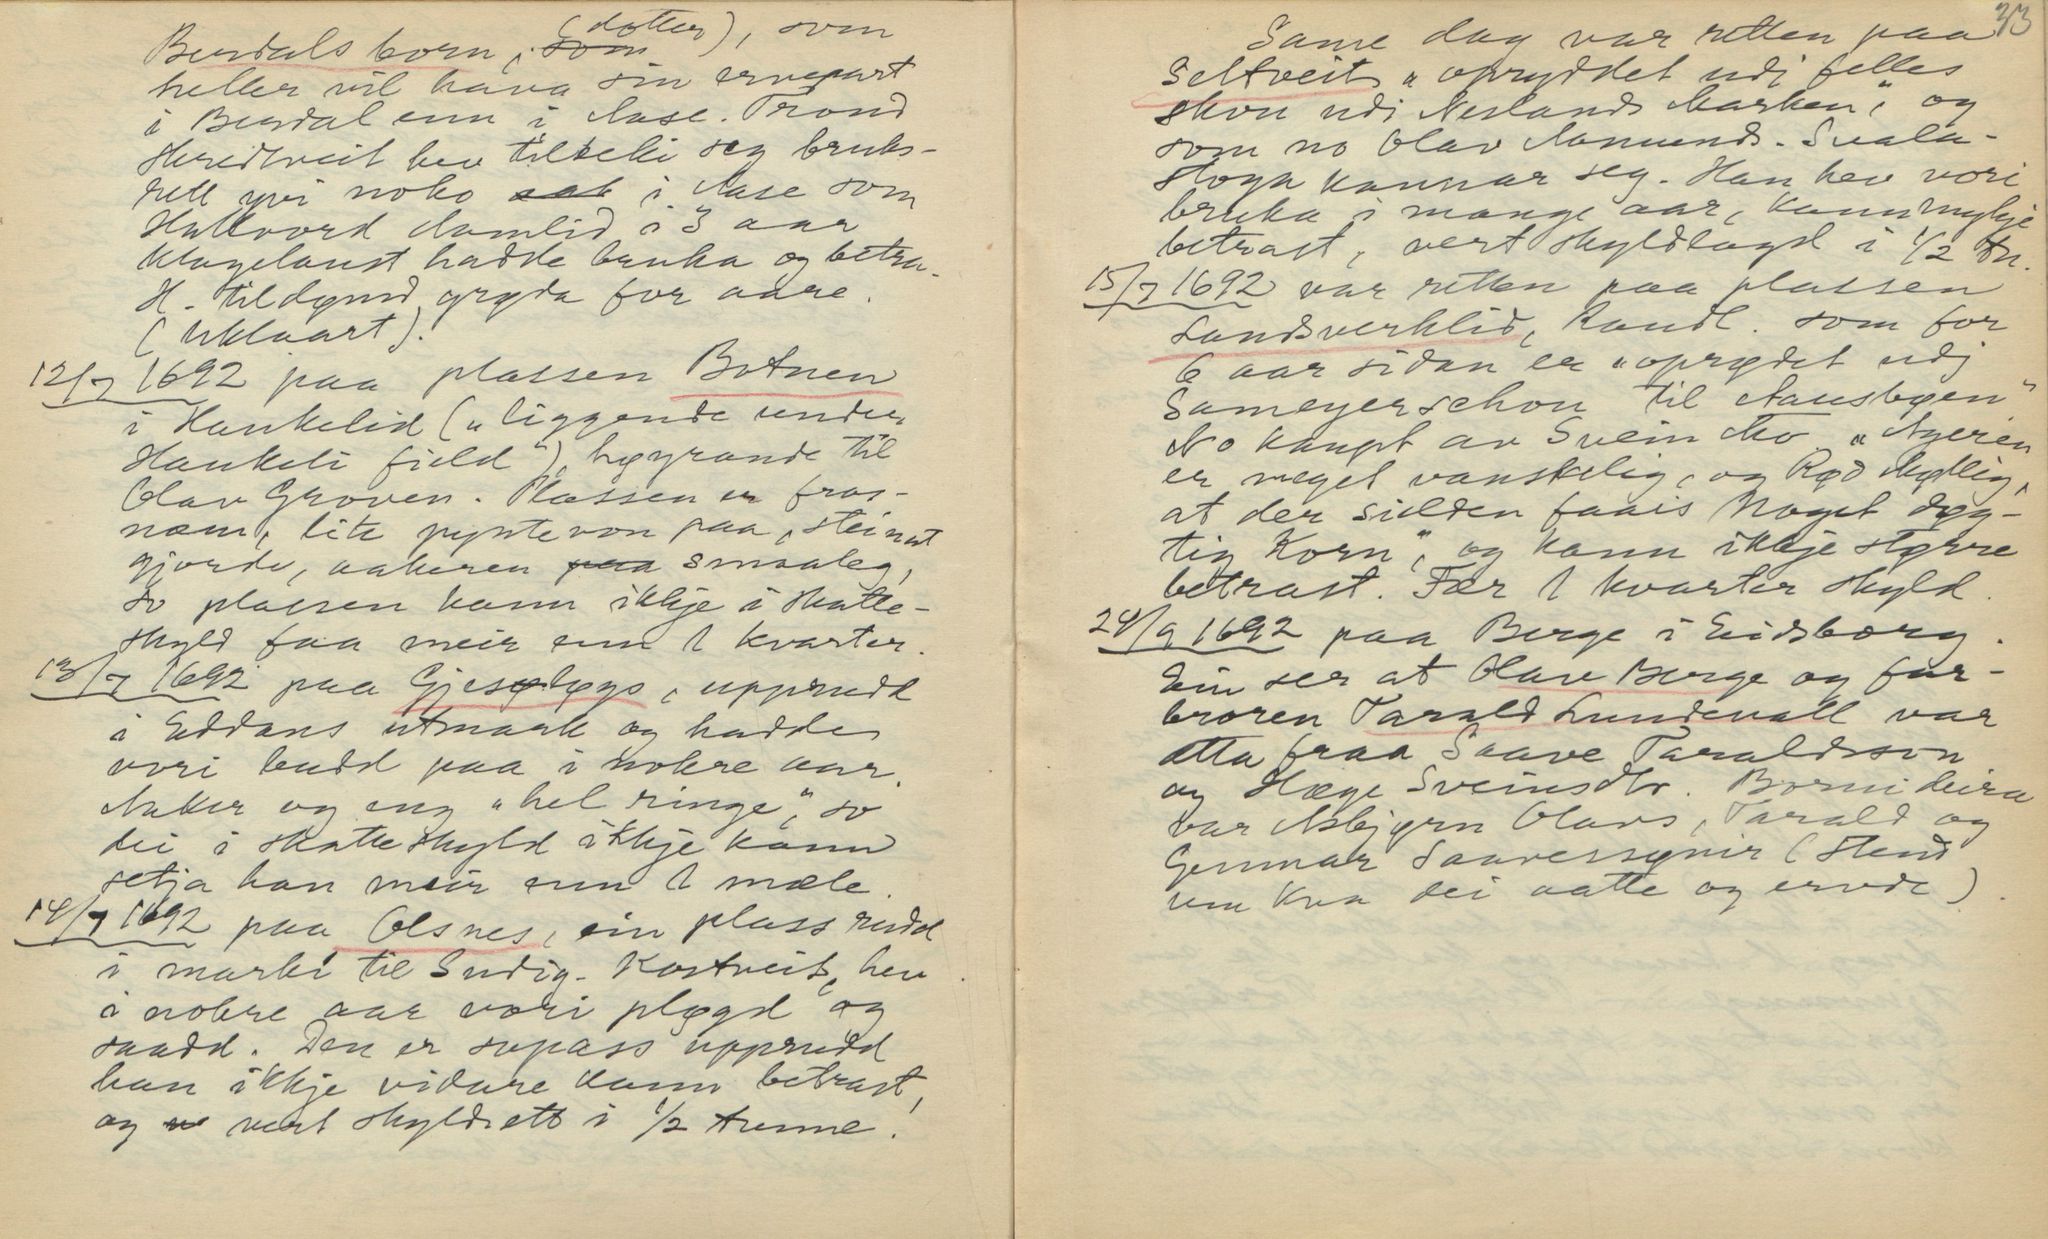 Burdals born, som (dotter), som
heller vil hava sin ervepart
i Burdal enn i Aase. Trond
Skredtveit hev tilteki seg bruks-
rett yvi noko sæt i Aase som
Hallvord Aamlid i 3 aar
klagelaust hadde bruka og betra.
H. tildømd grøda for aare.
(Uklaart).
12/7 1692 paa plassen Botnen
i Haukelid („liggende under
Haukeli field"), høyrande til
Olav Groven. Plassen er fros-
næm, lite nyntevon paa, steinut
gjorde, aakeren paa smaaleg,
so plassen kann ikkje i skatte-
skyld faa meir enn 1 kvarter.
13/7 1692 paa Gjesøløys, upprudt
i Eddans utmark og hadde
vori budd paa i nokre aar.
Aaker og eng „hel ringe", so
dei i skatteskyld ikkje kann
setja han meir enn 1 mæle.
14/7 1692 paa Olsnes, ein plass rudd
i marki til Sudig. Kostveit, hev
i nokre aar vori pløgd og
saadd. Den er sopass upprudd
han ikkje vidare kann betrast,
og v vert skyldsett i 1/2 tunne.
33
Same dag var retten paa
Seltveit „opryddet udj felles
skou udi Neslands Marken", og
som no Olav Aamunds. Svala-
stoga kannar seg. Han hev vori
bruka i mange aar, kann mykje
betrast, vert skyldlagd i 1/2 tn.
15/7 1692 var retten paa plassen
Landsverklid, Raudl. som for
6 aar sidan er „oprødet udj
Sameyerschou til Naustegen"
No kaupt av Svein Mo. „Ageren
er meget vanskelig, og Rød Mødlig,
at der sielden faais Noget dyg-
tig Korn", og kann ikkje større
betrast. Fær 1 kvarter skyld.
24/9 1692 paa Berge i Eidsborg.
Ein ser at Olav Berge og far-
broren Tarald Lundevall var
ætta fraa Saave Taraldsson
og Hæge Sveinsdtr. Borni deira
var Asbjørn Olavs, Tarald og
Gunnar Saavessynir (stend
um kva dei aatte og ervde).